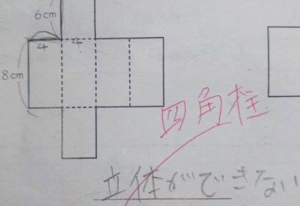 6cm
4 4
8cm
四角柱
立体ができない